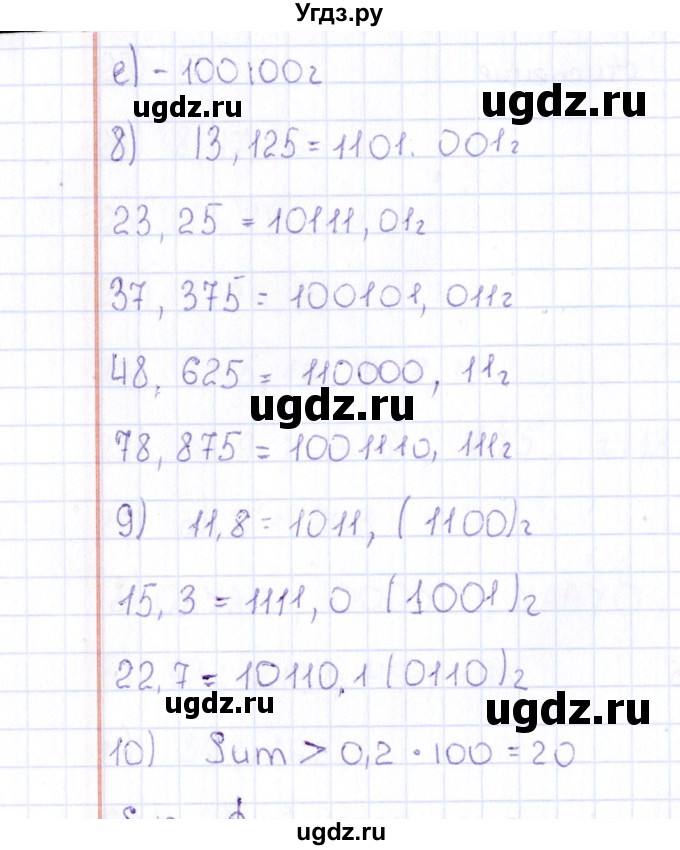 Угдз.ру
е) -100100₂
ugdz.ru
ugdz.ru
8) 13,125 = 1101.001₂
23,25 = 10111,01₂
37,375 = 100101,011₂
48,625 = 110000,11₂
ugdz.ru
78,875 = 1001110,111₂
9) 11,8 = 1011,(1100)₂
15,3 = 1111,0(1001)₂
22,7 = 10110,1(0110)₂
ugdz.ru
ugdz.ru
10) Sum > 0,2 · 100 = 20
ugdz.ru